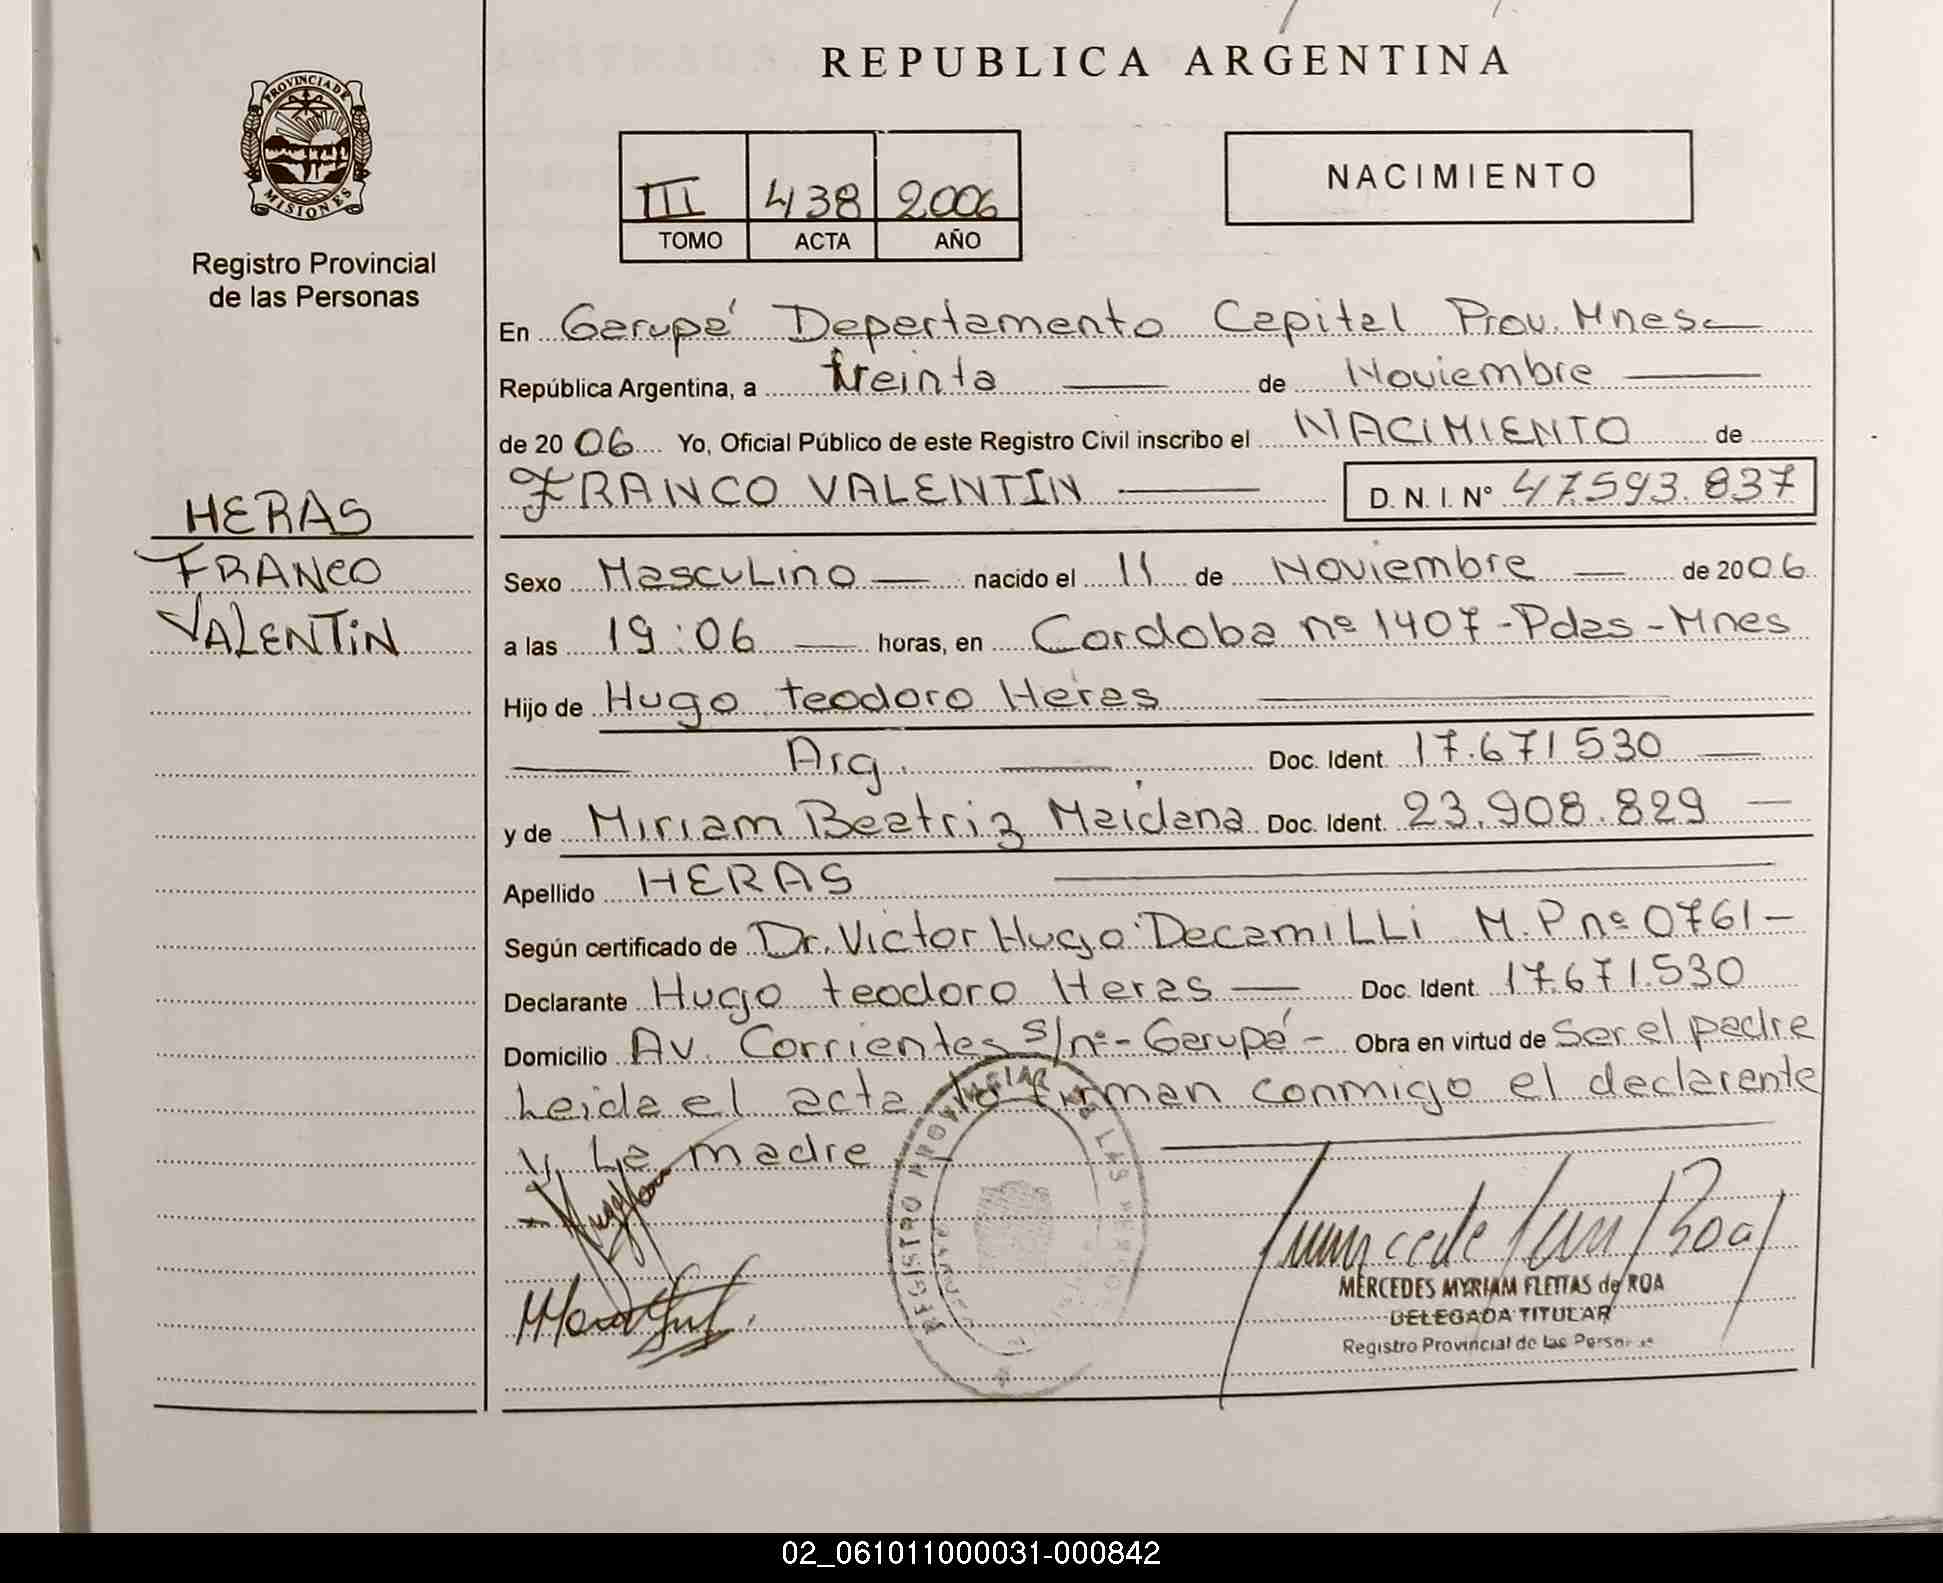 REPUBLICA ARGENTINA
PROVINCIA DE MISIONES
Registro Provincial
de las Personas
III 438 2006
TOMO ACTA AÑO
NACIMIENTO
HERAS
FRANCO
VALENTIN
En Garupá Departamento Capital Prov. Mnes
República Argentina, a treinta de Noviembre
de 2006 Yo, Oficial Público de este Registro Civil inscribo el NACIMIENTO de
FRANCO VALENTIN D. N. I. Nº 47.593.837
Sexo Masculino nacido el 11 de Noviembre de 2006
a las 19:06 horas, en Cordoba nº 1407 - Pdas - Mnes
Hijo de Hugo teodoro Heras
Arg. Doc. Ident. 17.671530
y de Miriam Beatriz Maidana Doc. Ident. 23.908.829
Apellido HERAS
Según certificado de Dr. Victor Hugo Decamilli M.P nº 0761-
Declarante Hugo teodoro Heras Doc. Ident. 17.671.530
Domicilio Av. Corrientes s/nº - Garupá - Obra en virtud de Ser el padre
Leida el acta la firman conmigo el declarante
y La madre
REGISTRO PROVINCIAL DE LAS PERSONAS
MERCEDES MYRIAM FLEITAS de ROA
DELEGADA TITULAR
Registro Provincial de las Personas
02_061011000031-000842